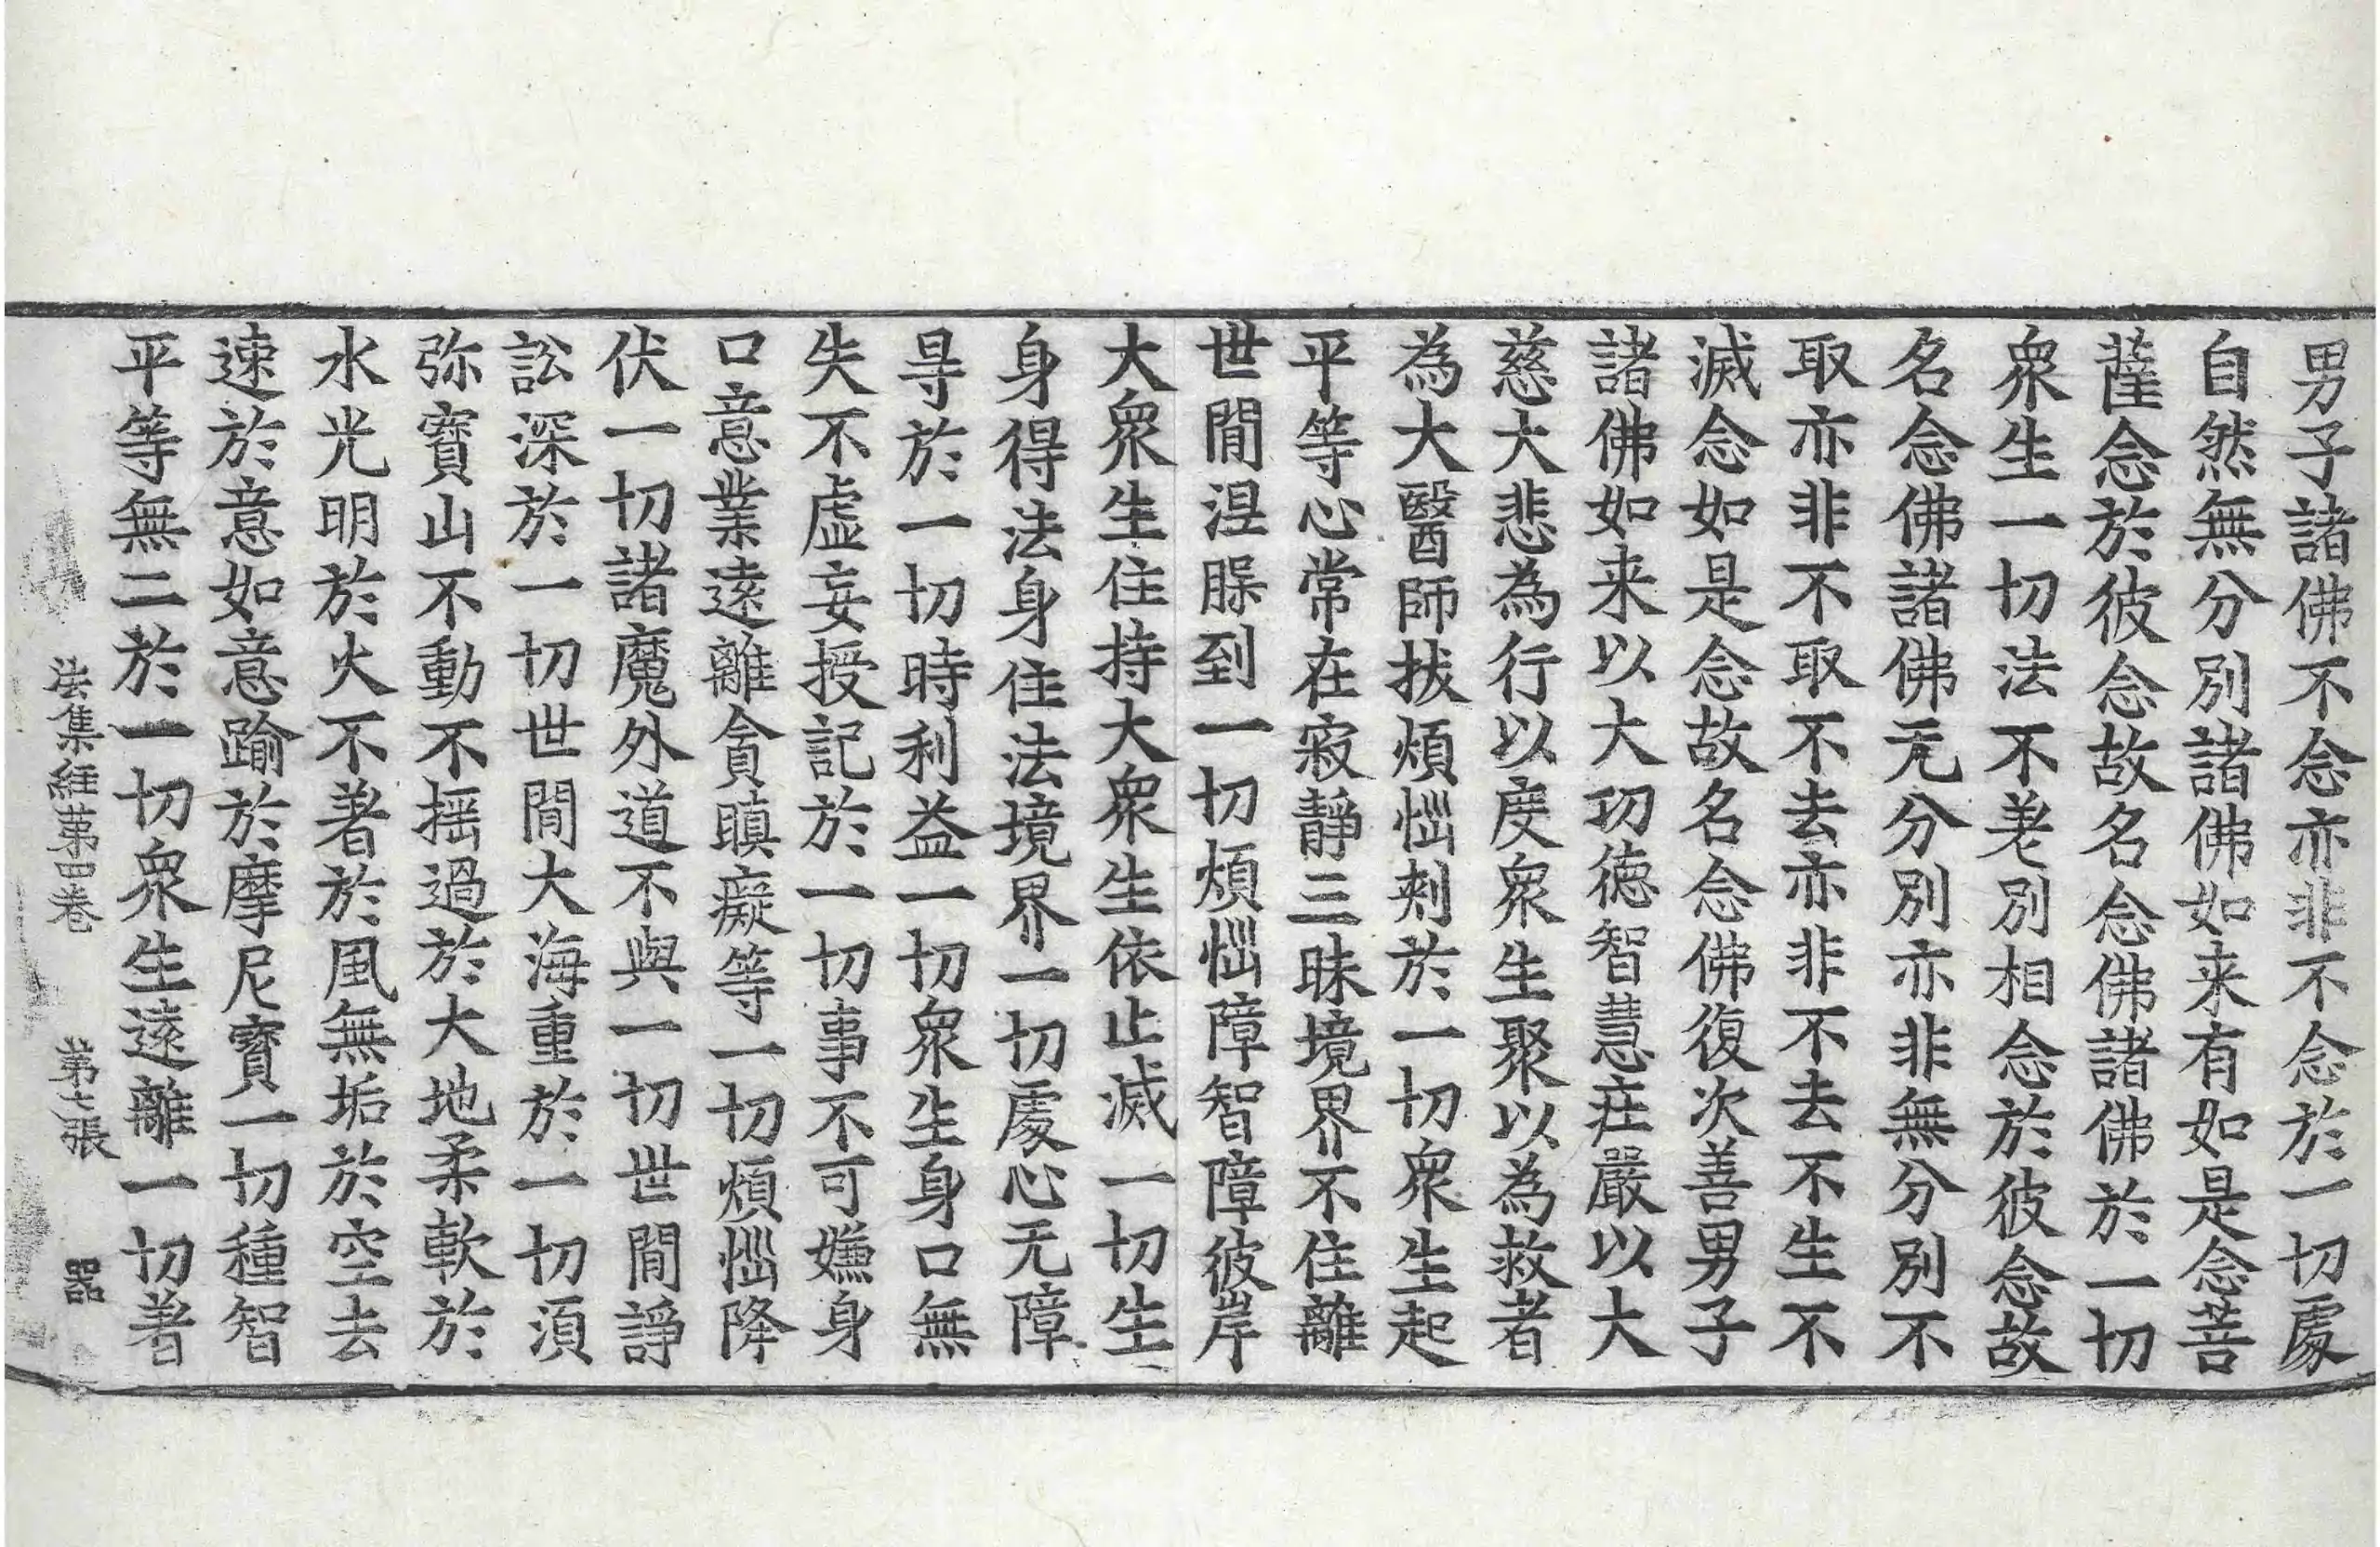 男子諸佛不念亦非不念於一切處
自然無分別諸佛如来有如是念菩
薩念於彼念故名念佛諸佛於一切
衆生一切法不差別相念於彼念故
名念佛諸佛无分別亦非無分別不
取亦非不取不去亦非不去不生不
滅念如是念故名念佛復次善男子
諸佛如来以大功徳智慧莊嚴以大
慈大悲為行以度衆生聚以為救者
為大醫師拔煩惱刺於一切衆生起
平等心常在寂静三昧境界不住離
世間涅槃到一切煩惱障智障彼岸
大衆生住持大衆生依止滅一切生
身得法身住法境界一切處心无障
㝵於一切時利益一切衆生身口無
失不虛妄授記於一切事不可嫌身
口意業遠離貪瞋癡等一切煩惱降
伏一切諸魔外道不與一切世間諍
訟深於一切世間大海重於一切須
弥寶山不動不揺過於大地柔軟於
水光明於火不著於風無垢於空去
速於意如意踰於摩尼寶一切種智
平等無二於一切衆生遠離一切著
法集經第四卷 第七張 器